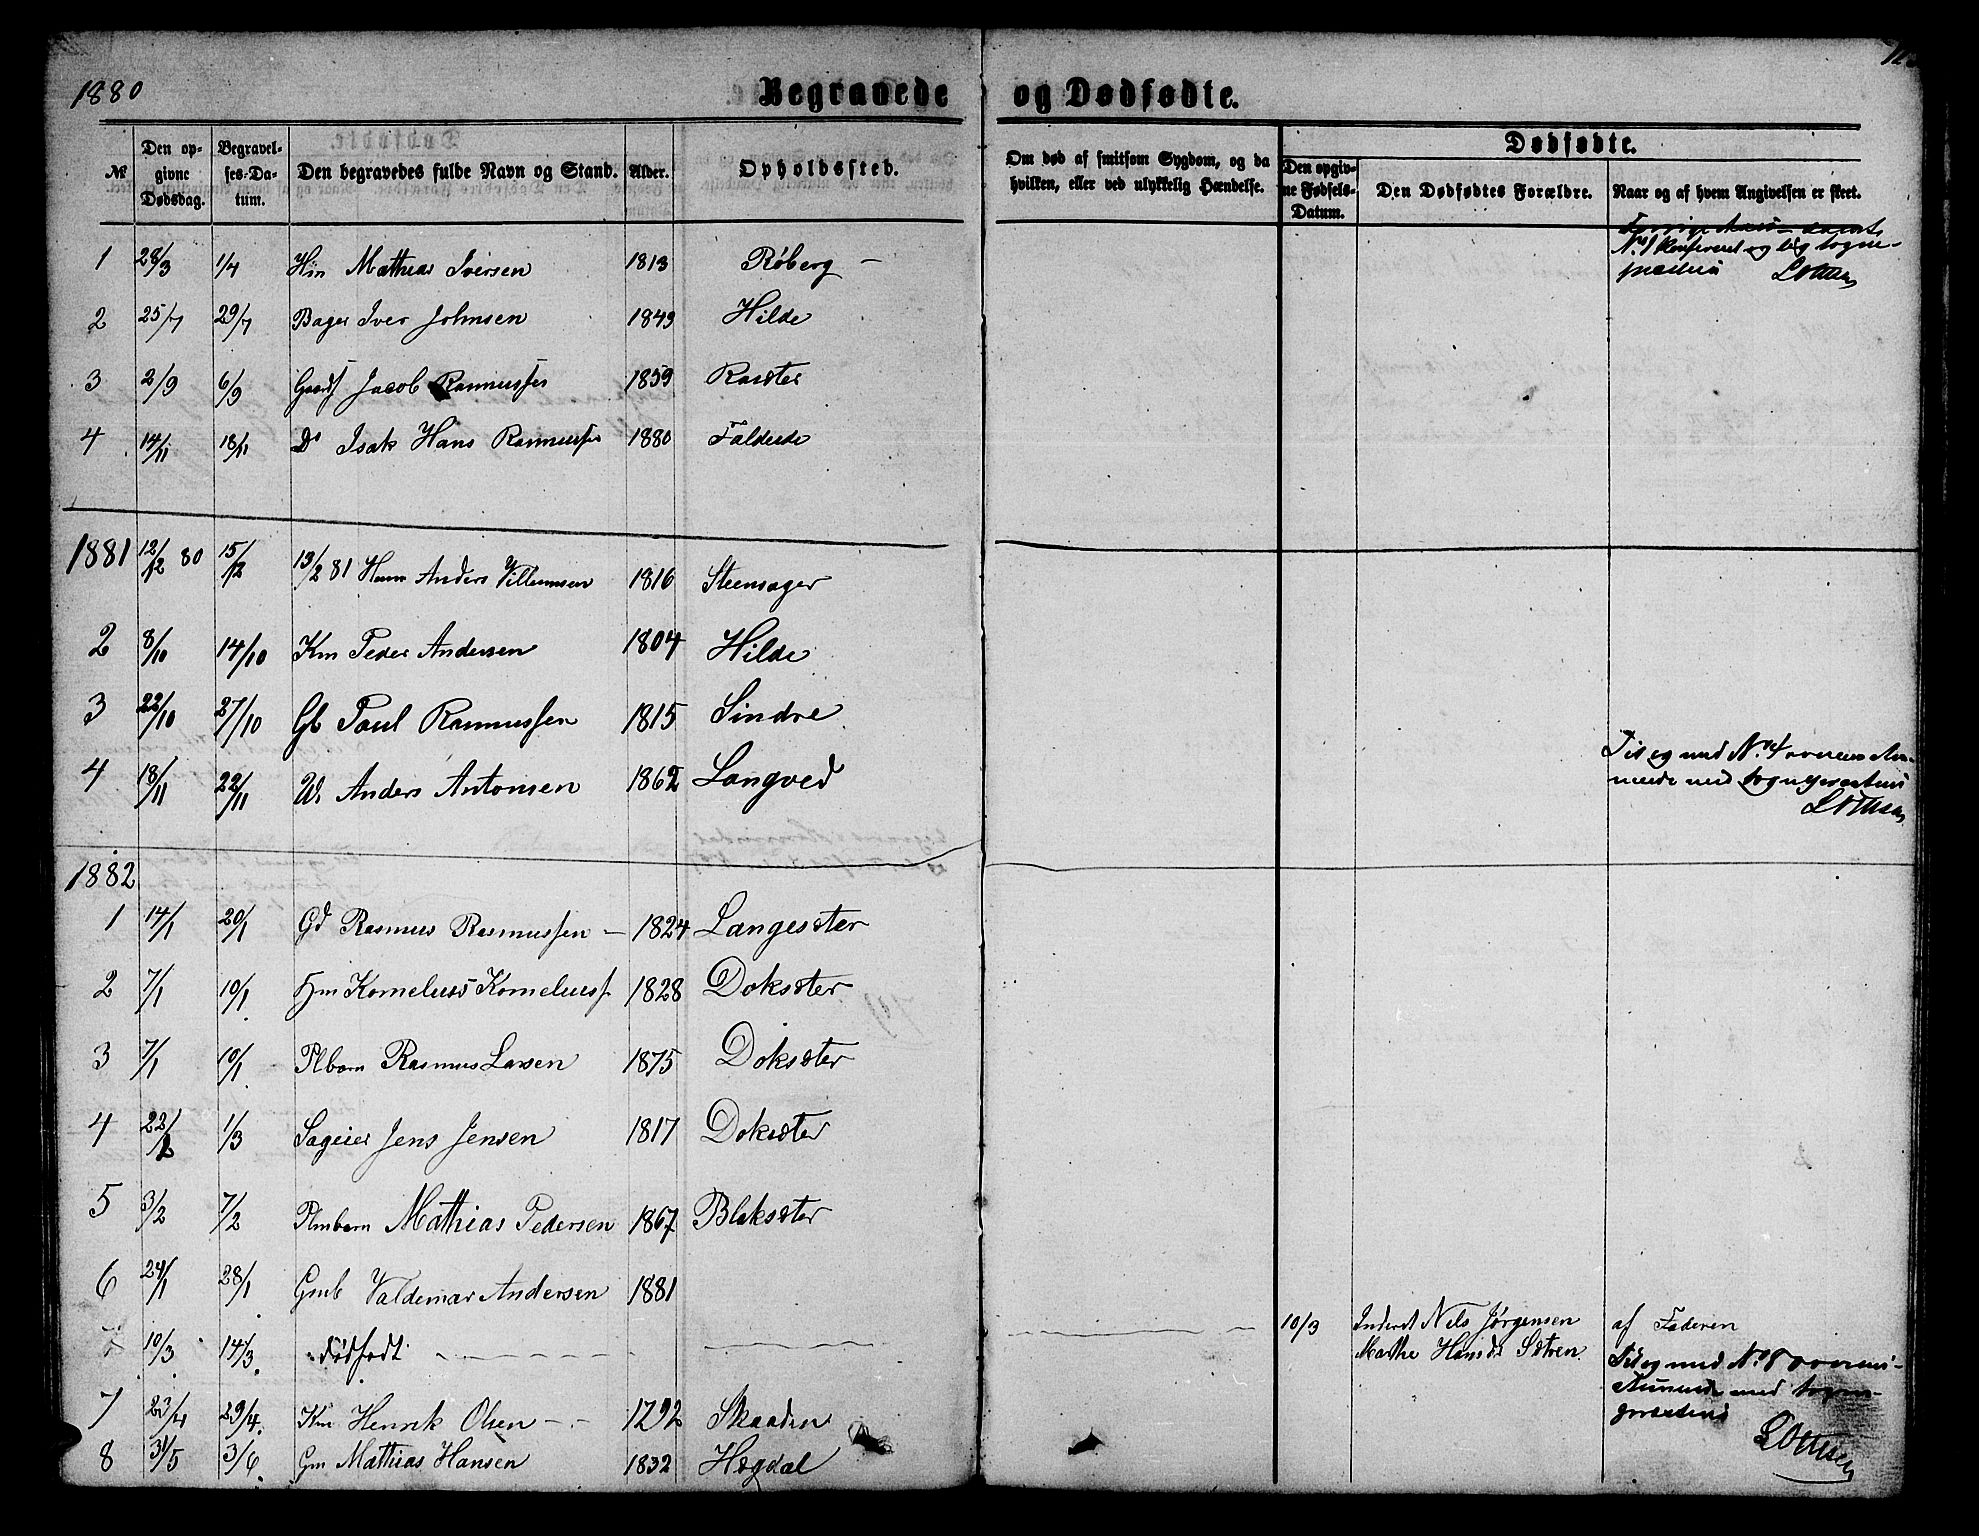 1880 Begravede og Dødfødte.
№ Den opgivne Dødsdag. Begravelses-Datum. Den begravedes fulde Navn og Stand. Alder. Opholdssted. Om død af smitsom Sygdom, og da hvilken, eller ved ulykkelig Hændelse. Dødfødte.
Den opgivne Fødsels-Datum. Den Dødfødtes Forældre. Naar og af hvem Angivelsen er skeet.
1 28/3 1/4 Mathias Iversen 1813 Røberg -
No 1 konfereret og lig sogne-
2 25/7 29/7 Iver Johnsen 1849 Hilde
3 2/9 6/9 Jacob Rasmussen 1859
4 14/11 18/11 Do Isak Hans Rasmussen 1880 Faldeide
1881 12/12 80 15/12 13/2 81 Anders Villumsen 1816 Steensager
2 8/10 14/10 Km Peder Andersen 1804 Hilde
3 22/10 27/10 Paul Rasmussen 1815 Sindre
4 18/11 22/11 Anders Antonsen 1862 Langved
Til og med No 4 overens
med
1882
1 14/1 20/1 Gd Rasmus Rasmussen - 1824 Langesæter
2 7/1 10/1 Hm Kornelius Korneliusf 1828 Doksæter
3 7/1 10/1 Plbarn Rasmus Larsen 1875 Doksæter
4 22/2 1/3 Jens Jensen 1817 Doksæter
5 3/2 7/2 Plmbarn Mathias Pedersen 1867 Bleksæter
6 24/1 28/1 Gmb Valdemar Andersen 1881
7 10/3 14/3 dødfødt 10/3 Inderst Nils Jørgensen af Faderen
Marthe Hansdr Sætren
Til og med No 8 overens-
med sogne-
7 23/4 29/4. Km Henrik Olsen - - 1792 Skaaden
8 31/5 3/6. Gm Mathias Hansen 1832 Hogdal